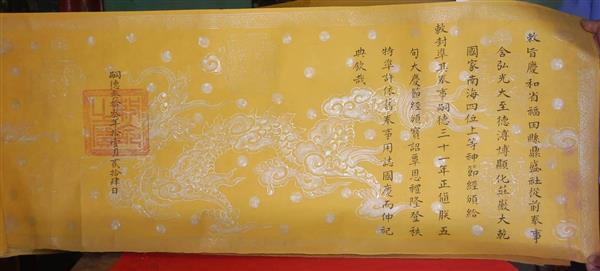 敕旨慶和省福田縣鼎盛社從前奉事
含弘光大至德溥博顯化莊徽大乾
國家南海四位上等神節經頒給
敕封準其奉事嗣德三十一年正值朕五
旬大慶節經頒寶詔覃恩禮隆登秩
特準許依舊奉事用誌國慶而伸祀
典欽哉
嗣德叁拾叁年拾壹月貳拾肆日